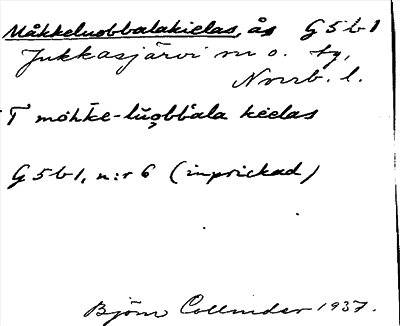 Måkkeluobbalakielas, ås G5b1
Jukkasjärvi sn o. tg,
Norrb. l.
T mohkē-lŭobbala kielas
G5b1, n:r 6 (inprickad)
Björn Collinder 1937.